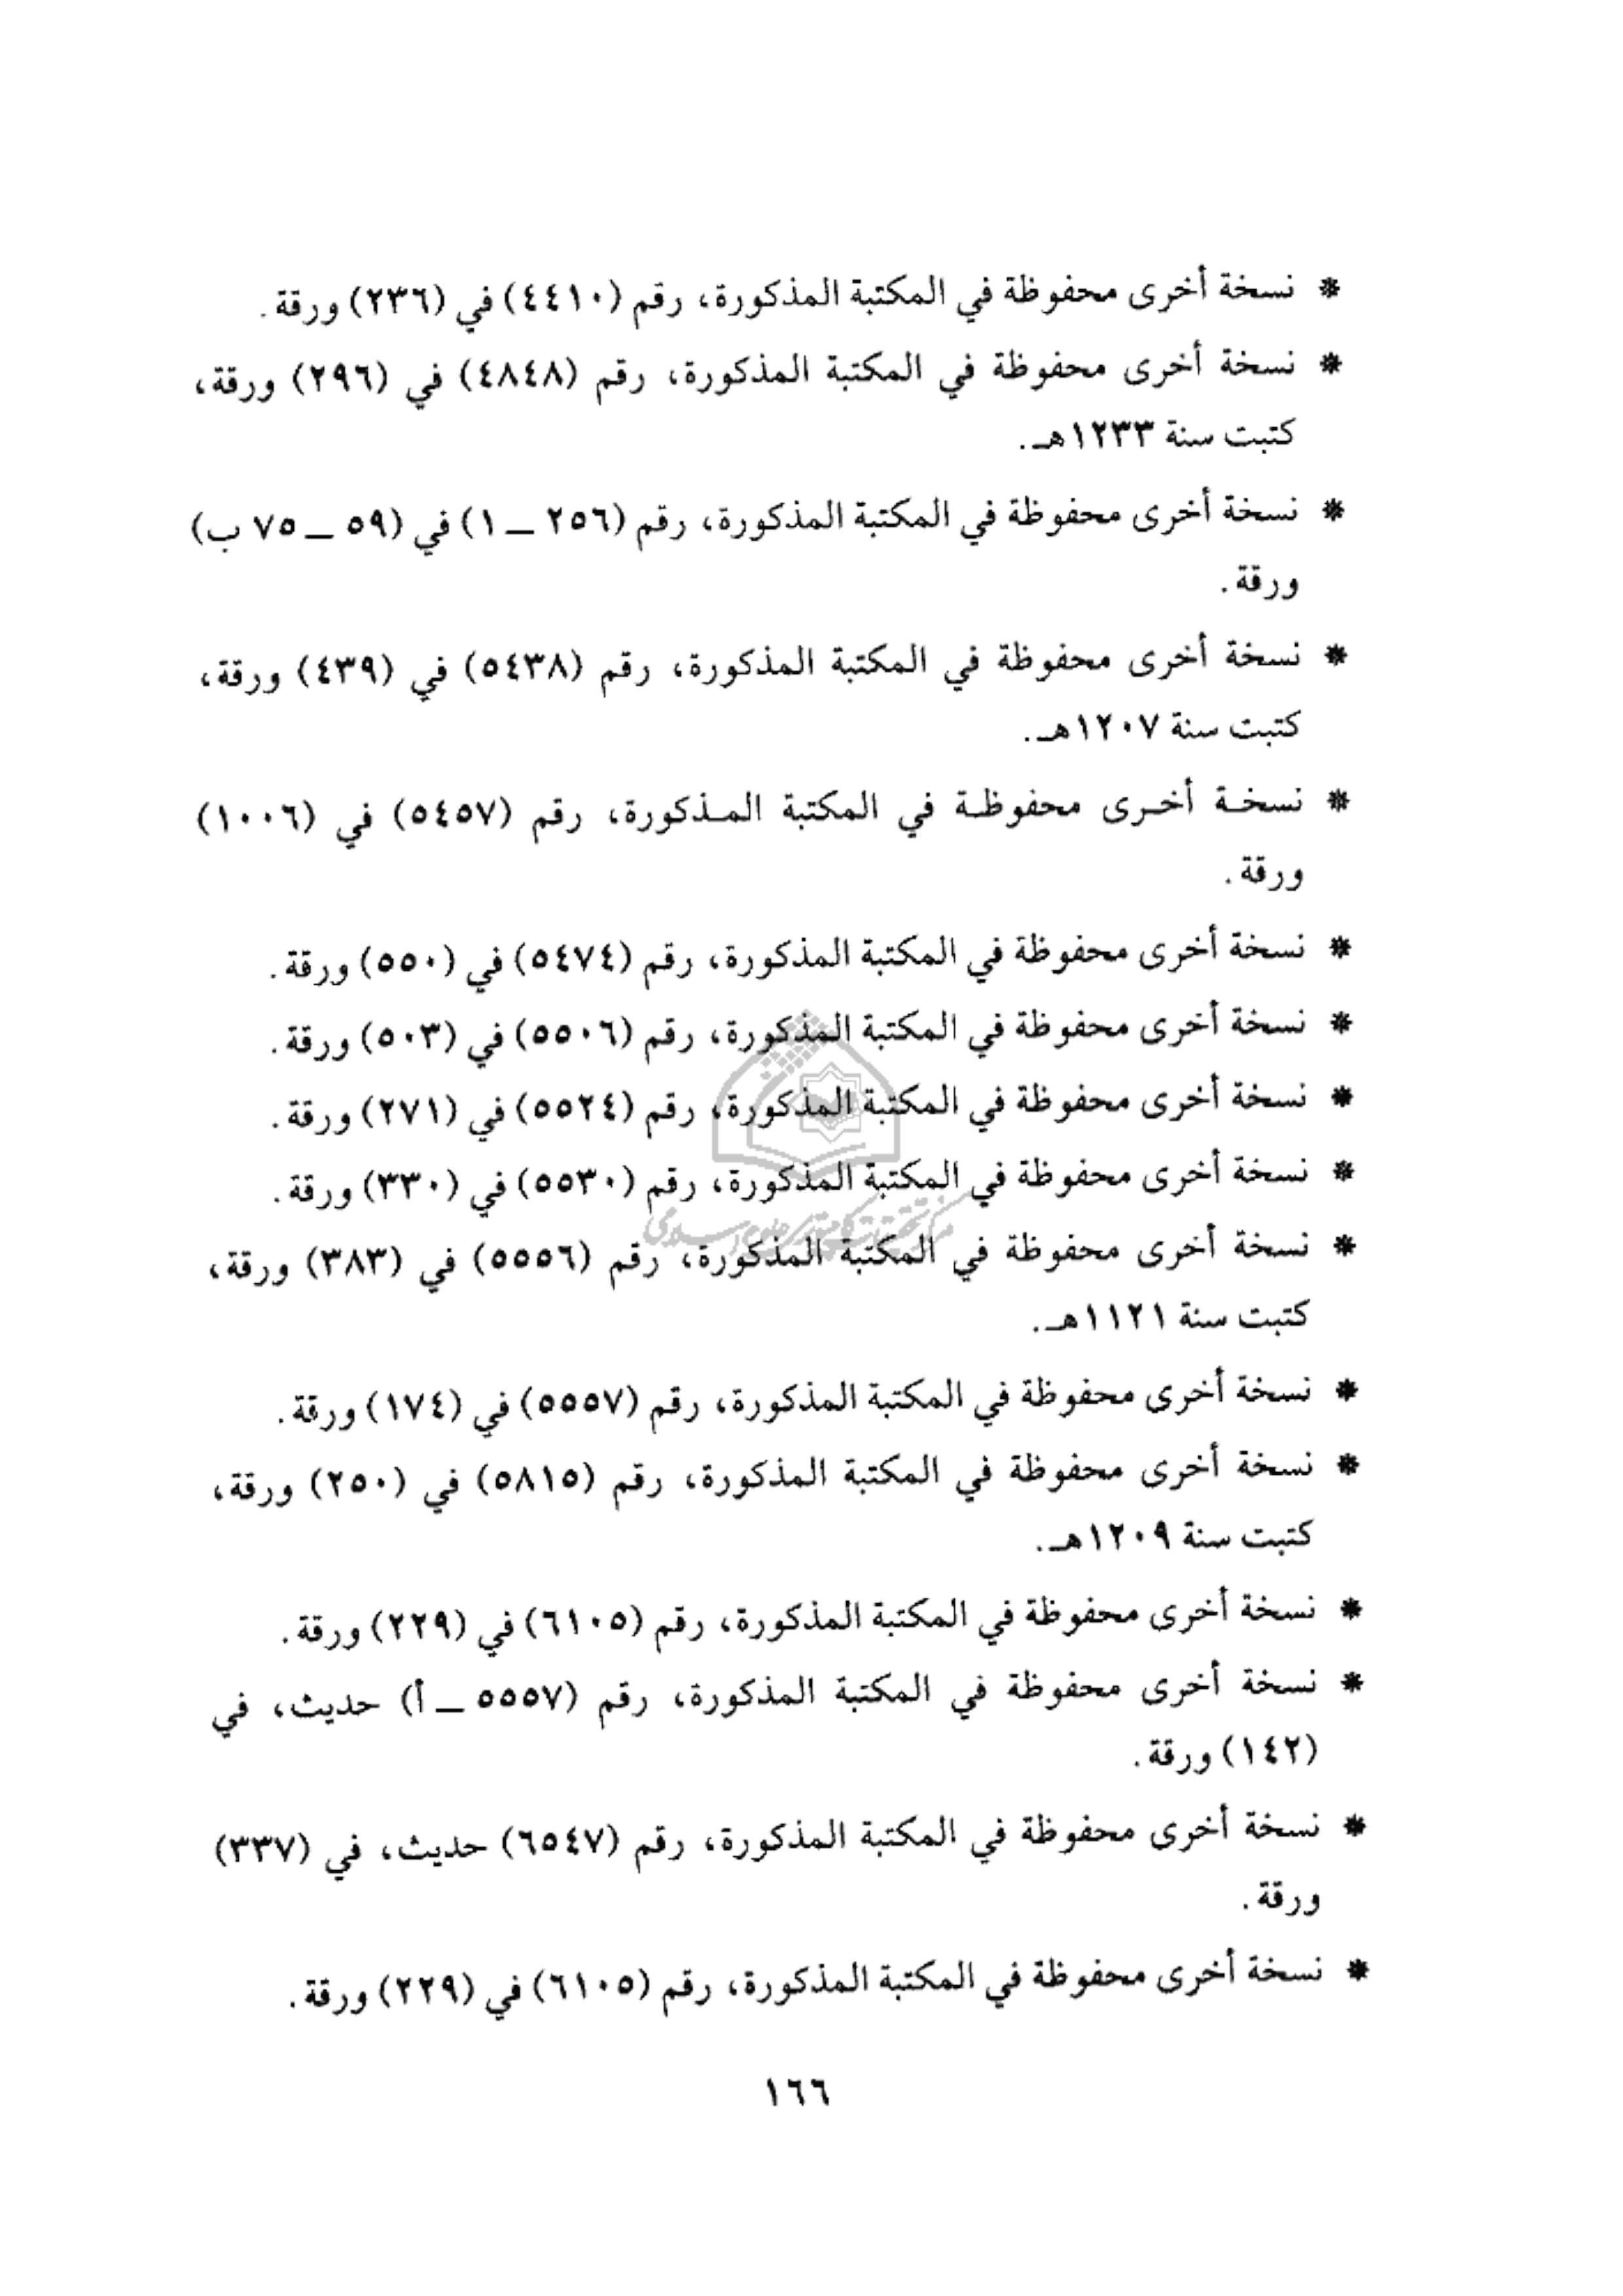 * نسخة أخرى محفوظة في المكتبة المذكورة، رقم (٤٤١٠) في (٢٣٦) ورقة.
* نسخة أخرى محفوظة في المكتبة المذكورة، رقم (٤٨٤٨) في (٢٩٦) ورقة،
كتبت سنة ١٢٣٣هـ.
* نسخة أخرى محفوظة في المكتبة المذكورة، رقم (٢٥٦ ــ ١) في (٥٩ ــ ٧٥ ب)
ورقة.
* نسخة أخرى محفوظة في المكتبة المذكورة، رقم (٥٤٣٨) في (٤٣٩) ورقة،
كتبت سنة ١٢٠٧هـ.
* نسخـة أخـرى محفوظـة في المكتبة المـذكورة، رقم (٥٤٥٧) في (١٠٠٦)
ورقة.
* نسخة أخرى محفوظة في المكتبة المذكورة، رقم (٥٤٧٤) في (٥٥٠) ورقة.
* نسخة أخرى محفوظة في المكتبة المذكورة، رقم (٥٥٠٦) في (٥٠٣) ورقة.
* نسخة أخرى محفوظة في المكتبة المذكورة، رقم (٥٥٢٤) في (٢٧١) ورقة.
* نسخة أخرى محفوظة في المكتبة المذكورة، رقم (٥٥٣٠) في (٣٣٠) ورقة.
* نسخة أخرى محفوظة في المكتبة المذكورة، رقم (٥٥٥٦) في (٣٨٣) ورقة،
كتبت سنة ١١٢١هـ.
* نسخة أخرى محفوظة في المكتبة المذكورة، رقم (٥٥٥٧) في (١٧٤) ورقة.
* نسخة أخرى محفوظة في المكتبة المذكورة، رقم (٥٨١٥) في (٢٥٠) ورقة،
كتبت سنة ١٢٠٩هـ.
* نسخة أخرى محفوظة في المكتبة المذكورة، رقم (٦١٠٥) في (٢٢٩) ورقة.
* نسخة أخرى محفوظة في المكتبة المذكورة، رقم (٥٥٥٧ ــ أ) حديث، في
(١٤٢) ورقة.
* نسخة أخرى محفوظة في المكتبة المذكورة، رقم (٦٥٤٧) حديث، في (٣٣٧)
ورقة.
* نسخة أخرى محفوظة في المكتبة المذكورة، رقم (٦١٠٥) في (٢٢٩) ورقة.
١٦٦